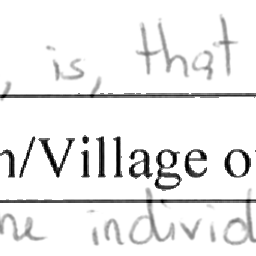 , is, that
n/Village o
ne individ